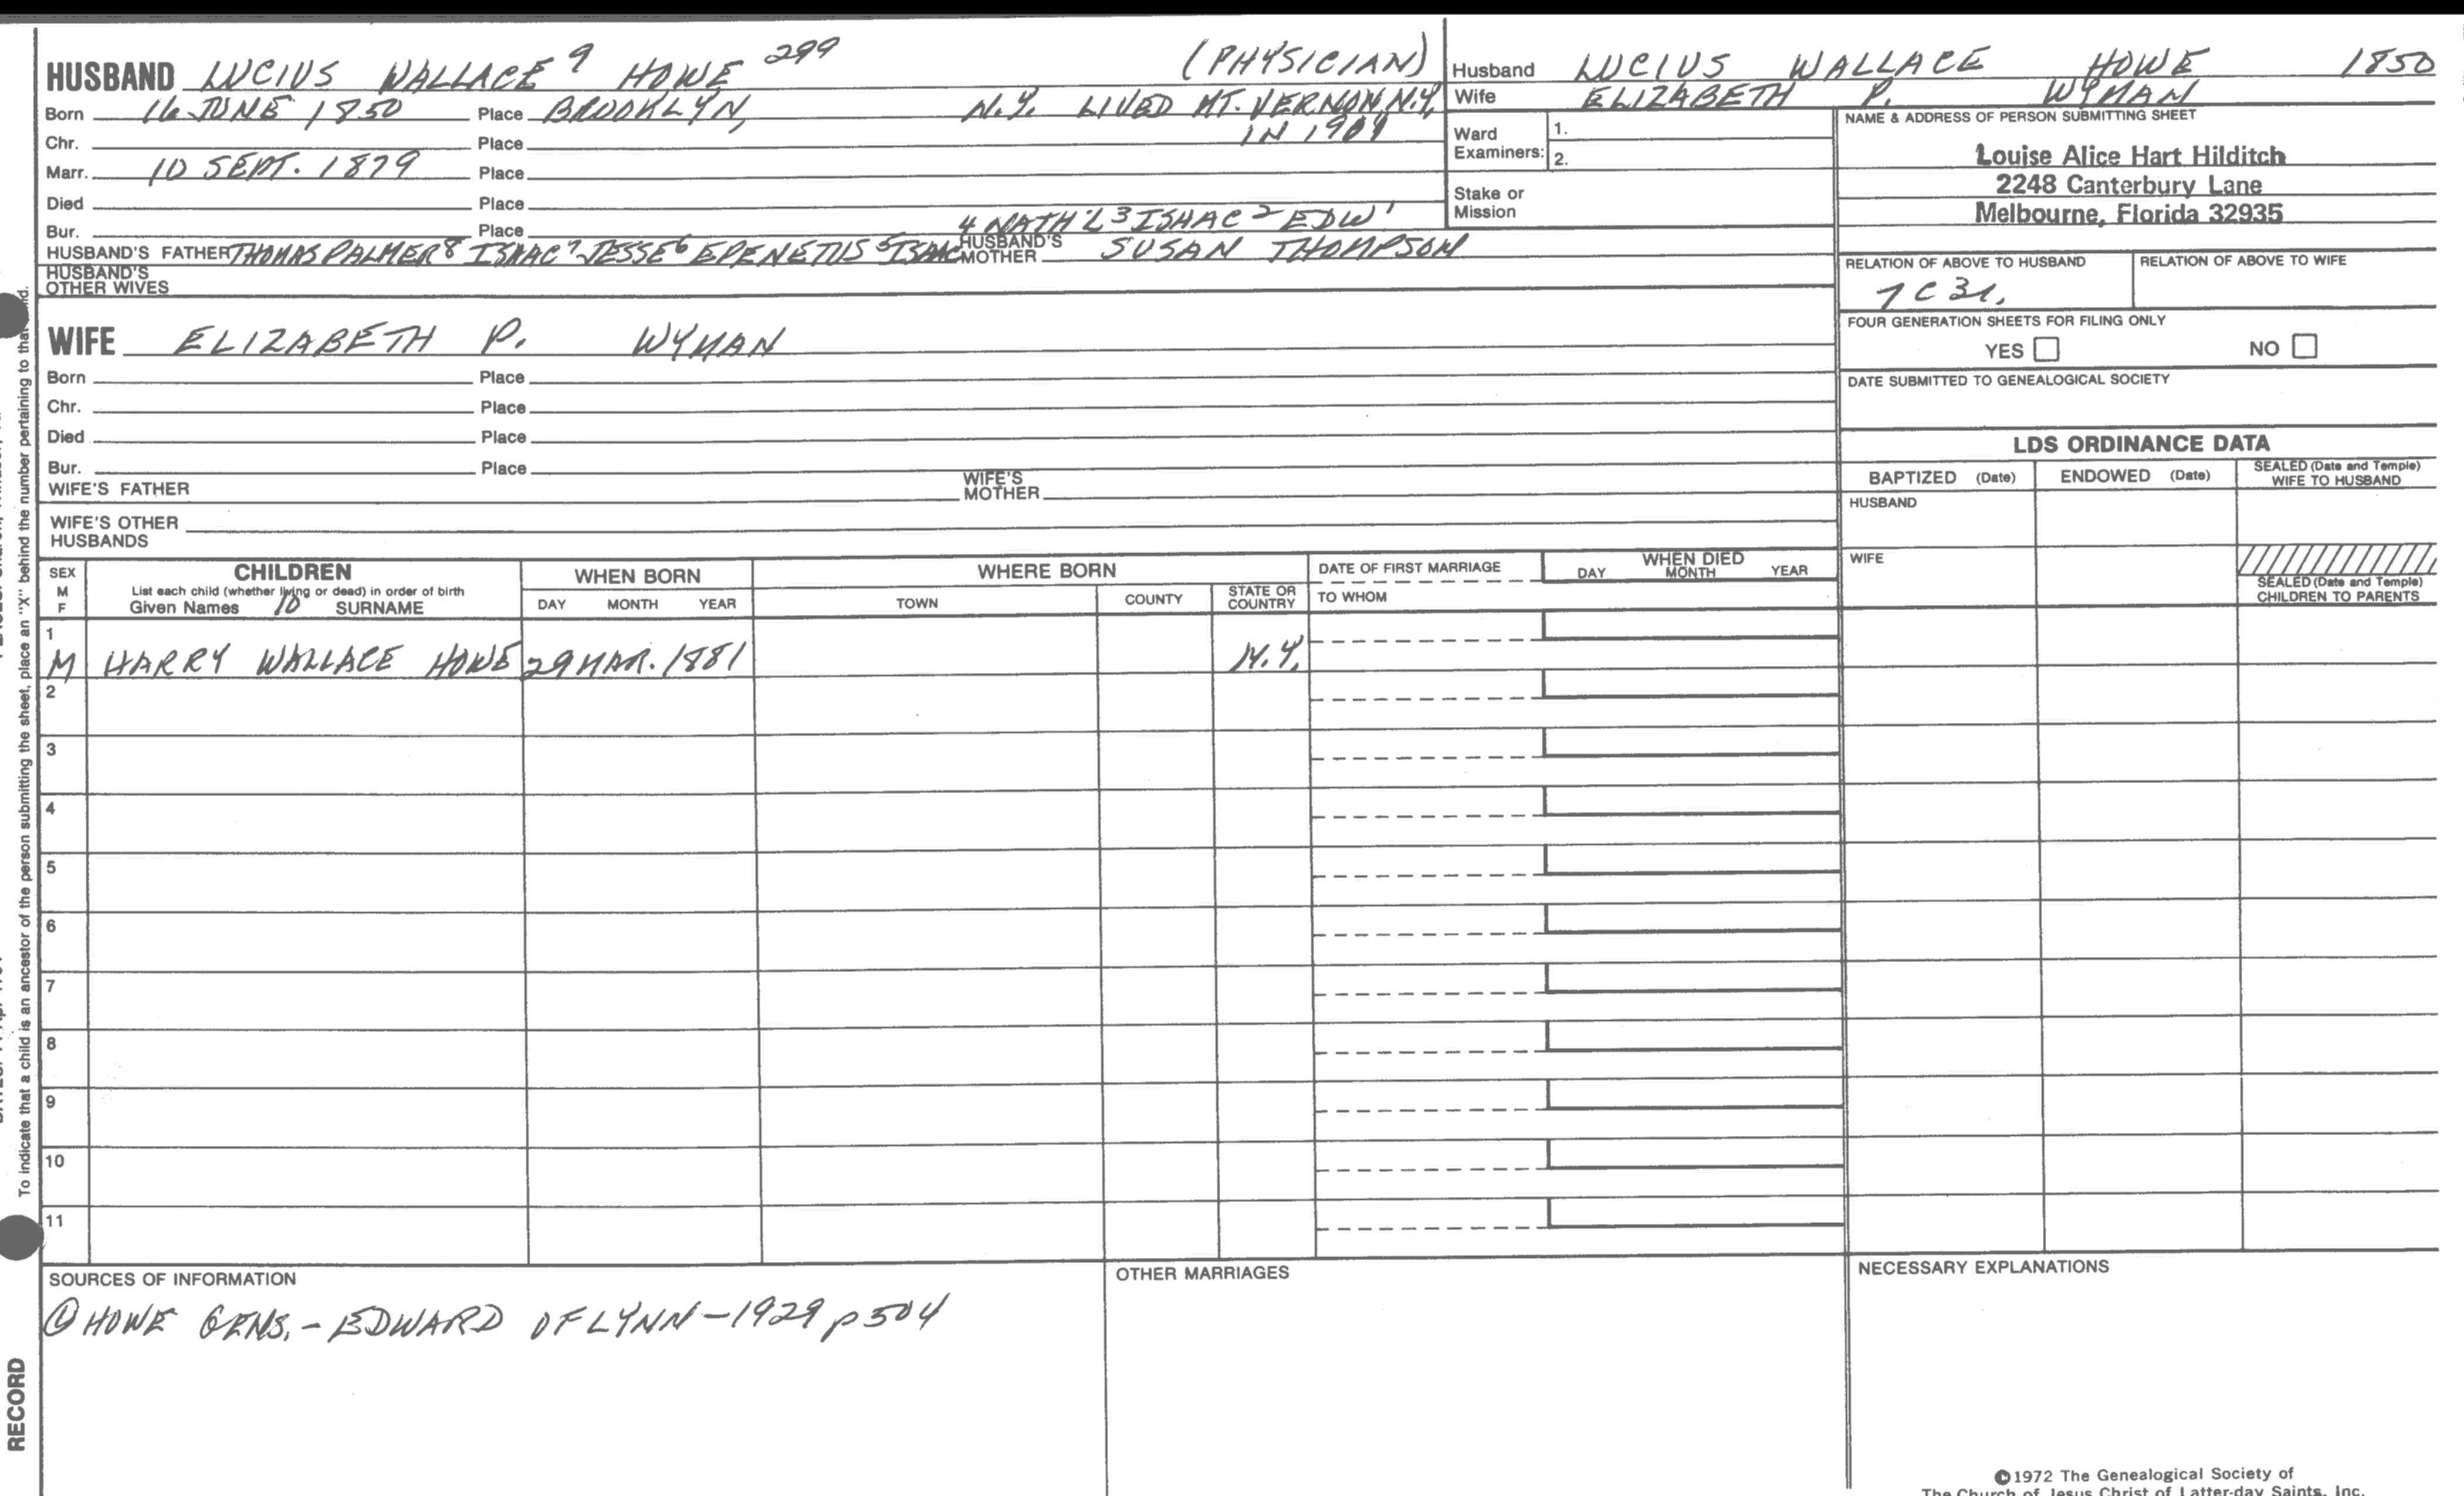 HUSBAND LUCIUS WALLACE 9 HOWE 299 (PHYSICIAN)
Born 16 JUNE 1850 Place BROOKLYN, N.Y. LIVED MT. VERNON, N.Y.
IN 1909
Chr. Place
Marr. 10 SEPT. 1879 Place
Died Place
Bur. Place 4 NATH'L 3 ISAAC 2 EDW 1
HUSBAND'S FATHER THOMAS PALMER 8 ISAAC 7 JESSE 6 EPENETUS 5 ISAAC HUSBAND'S MOTHER SUSAN THOMPSON
HUSBAND'S OTHER WIVES
Husband LUCIUS WALLACE HOWE 1850
Wife ELIZABETH P. WYMAN
Ward Examiners: 1.
2.
Stake or Mission
NAME & ADDRESS OF PERSON SUBMITTING SHEET
Louise Alice Hart Hilditch
2248 Canterbury Lane
Melbourne, Florida 32935
RELATION OF ABOVE TO HUSBAND RELATION OF ABOVE TO WIFE
7C3r.
FOUR GENERATION SHEETS FOR FILING ONLY
YES NO
DATE SUBMITTED TO GENEALOGICAL SOCIETY
WIFE ELIZABETH P. WYMAN
Born Place
Chr. Place
Died Place
Bur. Place
WIFE'S FATHER WIFE'S MOTHER
WIFE'S OTHER HUSBANDS
LDS ORDINANCE DATA
BAPTIZED (Date) ENDOWED (Date) SEALED (Date and Temple) WIFE TO HUSBAND
HUSBAND
WIFE
SEALED (Date and Temple) CHILDREN TO PARENTS
SEX M F
CHILDREN
List each child (whether living or dead) in order of birth
Given Names 10 SURNAME
WHEN BORN
DAY MONTH YEAR
WHERE BORN
TOWN COUNTY STATE OR COUNTRY
DATE OF FIRST MARRIAGE
TO WHOM
WHEN DIED
DAY MONTH YEAR
1
M HARRY WALLACE HOWE 29 MAR. 1881 N.Y.
2
3
4
5
6
7
8
9
10
11
SOURCES OF INFORMATION
① HOWE GENS. - EDWARD OF LYNN - 1929 p 504
OTHER MARRIAGES
NECESSARY EXPLANATIONS
©1972 The Genealogical Society of
The Church of Jesus Christ of Latter-day Saints, Inc.
To indicate that a child is an ancestor of the person submitting the sheet, place an "X" behind the number pertaining to that
RECORD